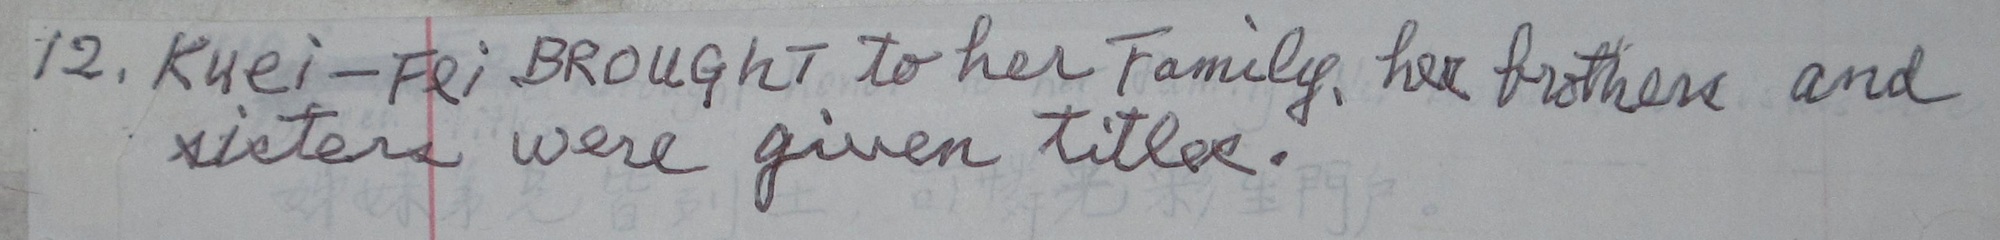 12. Kuei-Fei BROUGHT to her Family, her brothers and
sisters were given titles.
姊妹弟兄皆列土，可憐光彩生門戶。